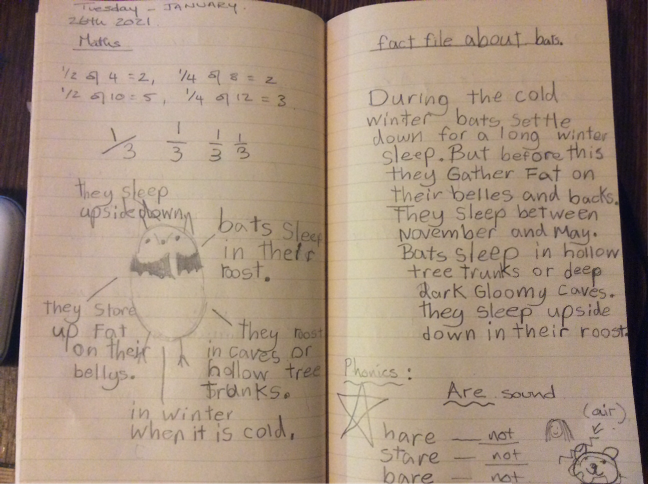 Tuesday - JANUARY.
26th 2021.
Maths
1/2 of 4 = 2, 1/4 of 8 = 2
1/2 of 10 = 5, 1/4 of 12 = 3
1/3 1/3 1/3 1/3
they sleep
upside down
bats Sleep
in their
roost.
they Store
up Fat
on their
bellys.
they roost
in caves or
hollow tree
trunks.
in winter
when it is cold.
fact file about bats.
During the cold
winter bats settle
down for a long winter
sleep. But before this
they Gather Fat on
their belles and backs.
They Sleep between
November and May.
Bats sleep in hollow
tree trunks or deep
dark Gloomy caves.
they sleep upside
down in their roost.
Phonics:
Are sound
(air)
hare — not
stare — not
bare — not